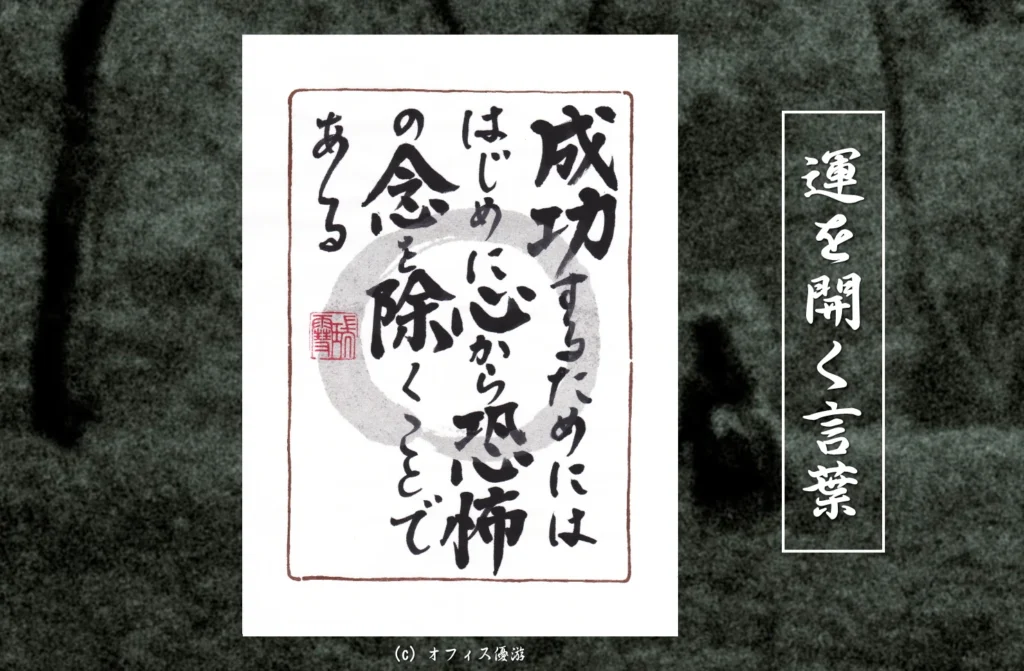 成功するためには
はじめに心から恐怖
の念を除くことで
ある
運を開く言葉
(c) オフィス優游